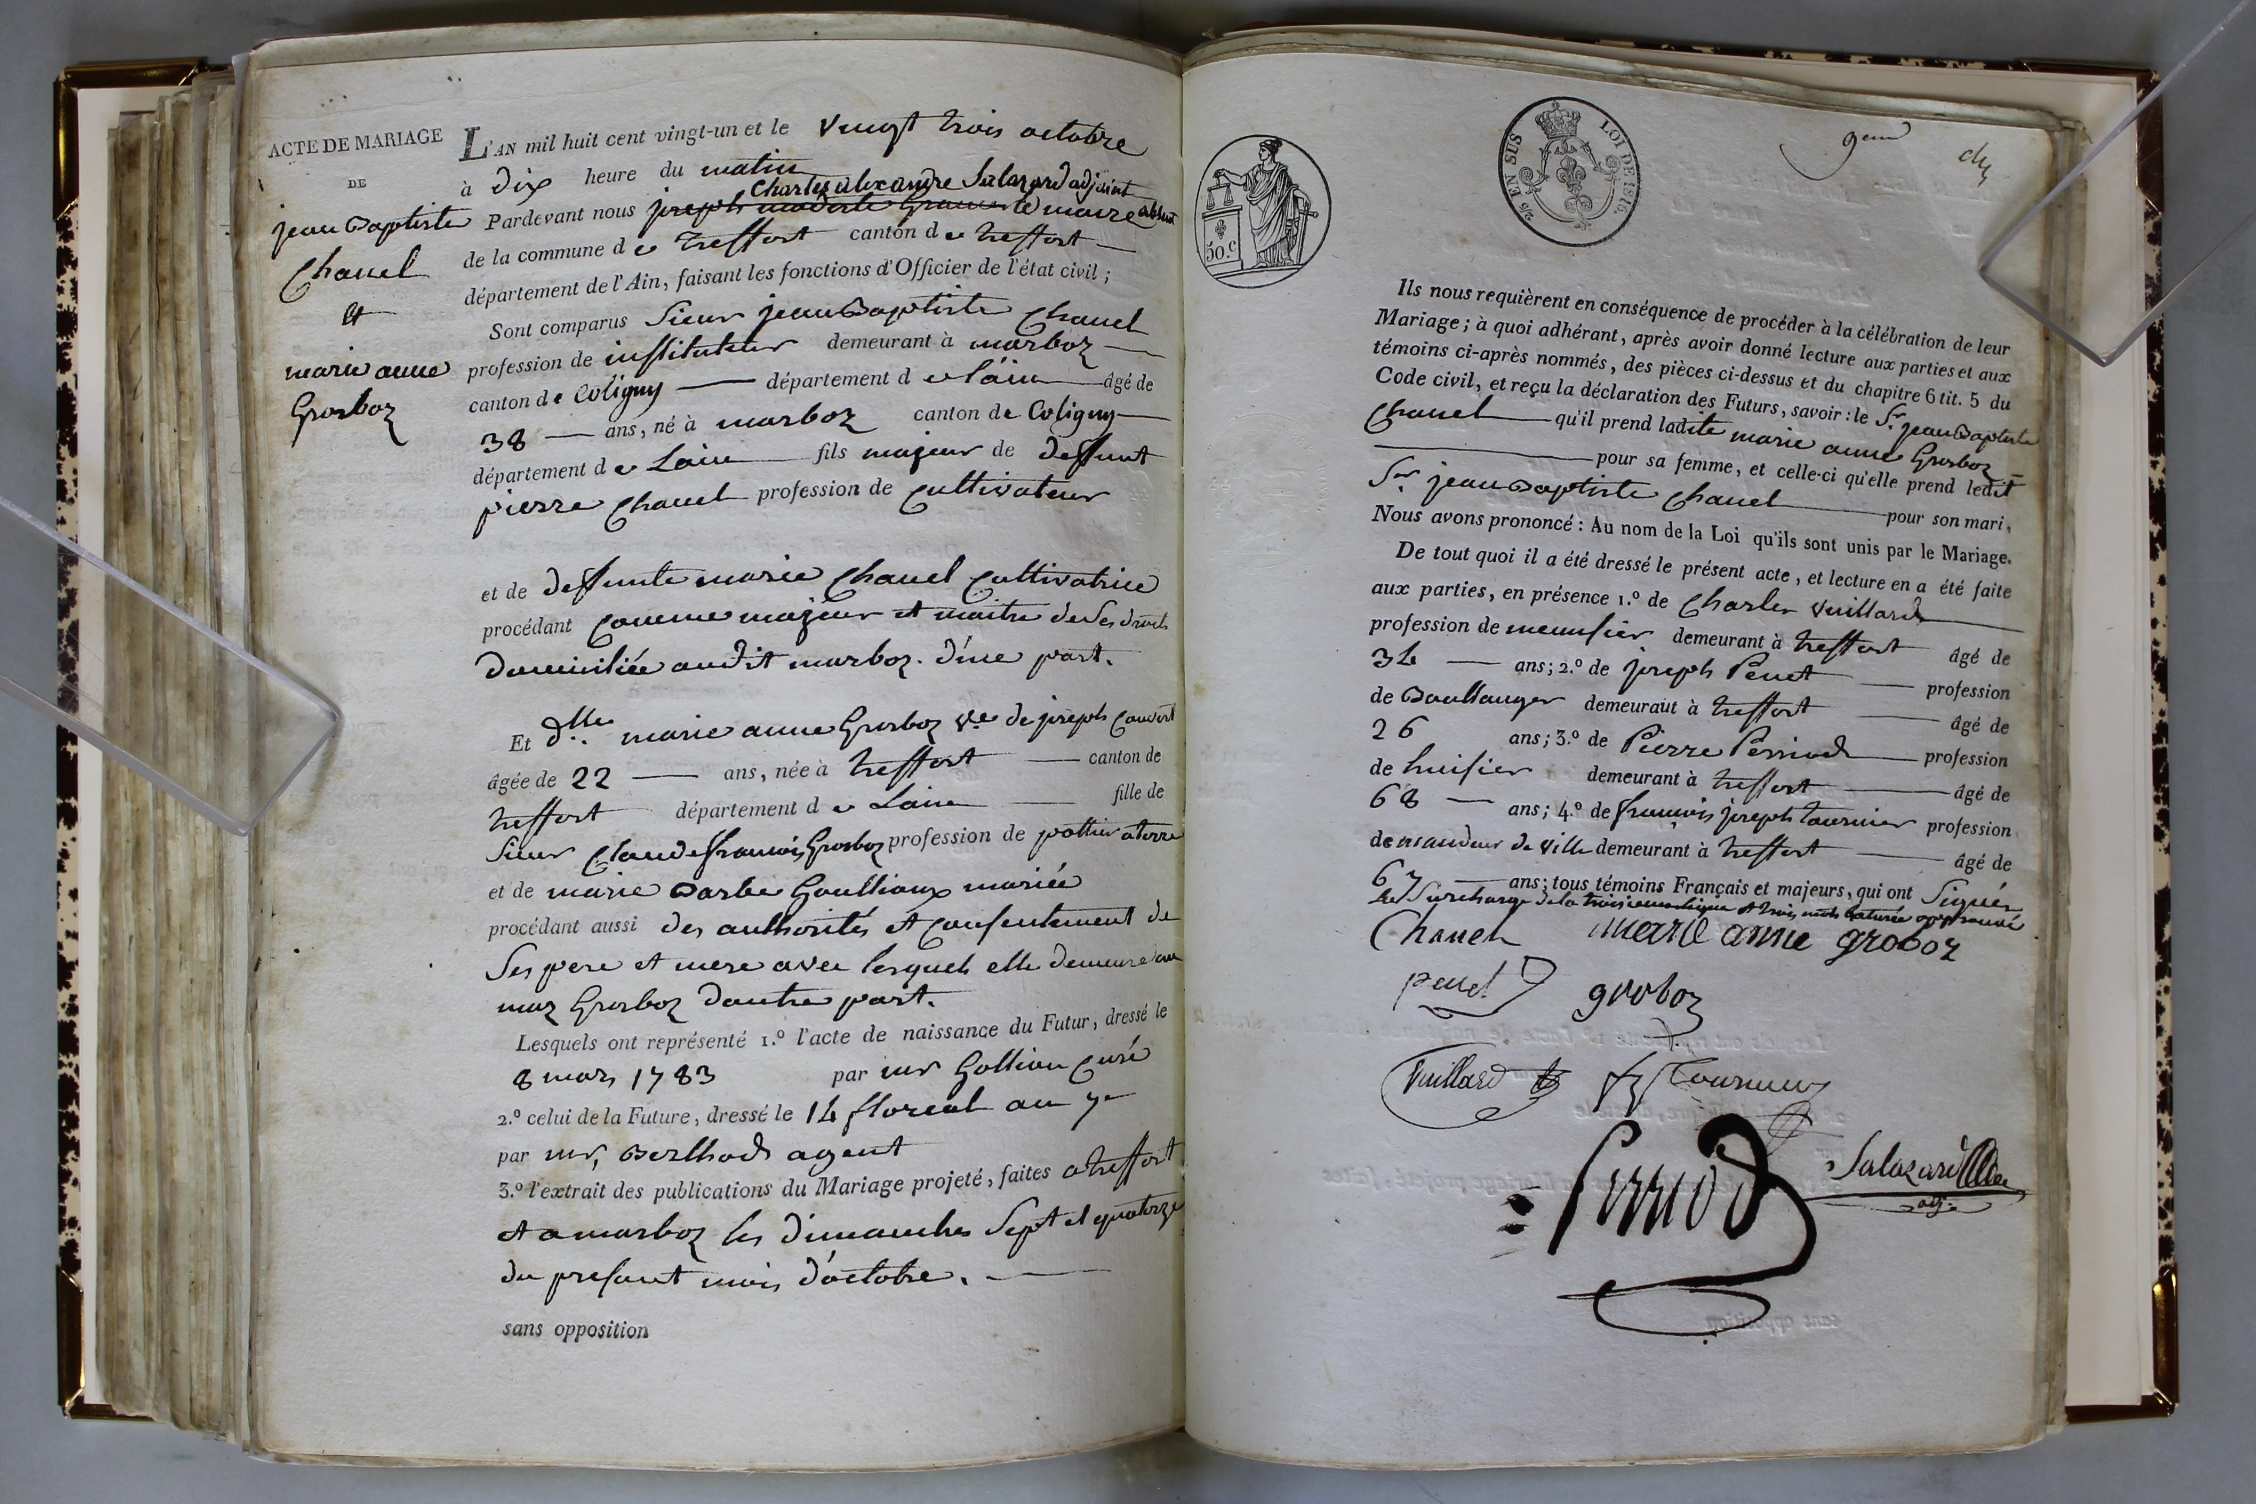 ACTE DE MARIAGE
DE
jean Baptiste
Chanel
et
marie anne
Grosboz
L'AN mil huit cent vingt-un et le vingt trois octobre
à dix heure du matin
Charles alexandre Salazard adjoint
Pardevant nous joseph le maire absent
de la commune de treffort canton de treffort
département de l'Ain, faisant les fonctions d'Officier de l'état civil;
Sont comparus Sieur jean Baptiste Chanel
profession de instituteur demeurant à marboz
canton de Coligny département de lain âgé de
38 ans, né à marboz canton de Coligny
département de Lain fils majeur de deffunt
pierre Chanel profession de Cultivateur
et de deffunte marie Chanel Cultivatrice
procédant Comme majeur et maitre de Ses droits
domiciliée audit marboz. d'une part.
Et dlle marie anne Grosboz ve de joseph Convert
âgée de 22 ans, née à treffort canton de
treffort département de Lain fille de
Sieur Claude francois Grosboz profession de pottier a terre
et de marie Barbe Goullioux mariée
procédant aussi des authorités et Consentement de
Ses pere et mere avec lesquels elle demeure au
maz Grosboz dautre part.
Lesquels ont représenté 1.º l'acte de naissance du Futur, dressé le
8 mars 1783 par mr Gollion Curé
2.º celui de la Future, dressé le 14 floreal an 7e
par mr, Berthod agent
3.º l'extrait des publications du Mariage projeté, faites a treffort
et a marboz les dimanches Sept et quatorze
du presant mois d'octobre.
sans opposition
50.c
25 EN SUS
LOI DE 1816
9em
Ils nous requièrent en conséquence de procéder à la célébration de leur
Mariage; à quoi adhérant, après avoir donné lecture aux parties et aux
témoins ci-après nommés, des pièces ci-dessus et du chapitre 6 tit. 5 du
Code civil, et reçu la déclaration des Futurs, savoir: le Sr. jean Baptiste
Chanel qu'il prend ladite marie anne Grosboz
pour sa femme, et celle-ci qu'elle prend ledit
Sr. jean Baptiste Chanel pour son mari,
Nous avons prononcé: Au nom de la Loi qu'ils sont unis par le Mariage.
De tout quoi il a été dressé le présent acte, et lecture en a été faite
aux parties, en présence 1.º de Charles Vuillard
profession de meunsier demeurant à treffort âgé de
34 ans; 2.º de joseph Penet profession
de Boullanger demeurant à treffort âgé de
26 ans; 3.º de Pierre Perriod profession
de huisier demeurant à treffort âgé de
68 ans; 4.º de francois joseph tournier profession
de mandeur de ville demeurant à treffort âgé de
67 ans; tous témoins Français et majeurs, qui ont Signés
la Surcharge de la troisieme ligne et trois mots raturée approuvé
Chanel marie anne groboz
penet groboz
Vuillard fj Tournier
Perriod Salazard
adj.